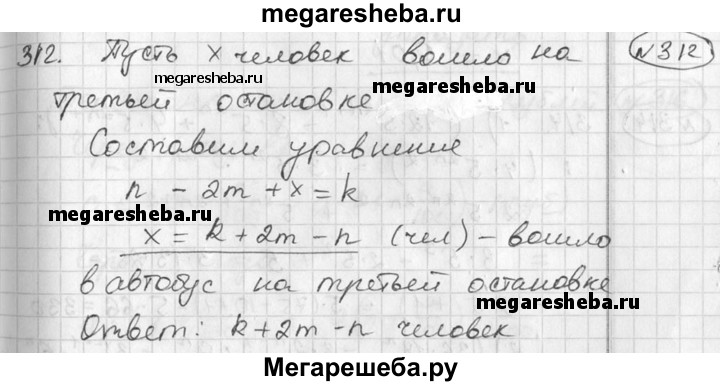 megaresheba.ru
312. Пусть x человек вошло на №312
megaresheba.ru
megaresheba.ru
третьей остановке
Составим уравнение
n - 2m + x = k
megaresheba.ru
x = k + 2m - n (чел) - вошло
в автобус на третьей остановке
megaresheba.ru
Ответ: k + 2m - n человек
Мегарешеба.ру